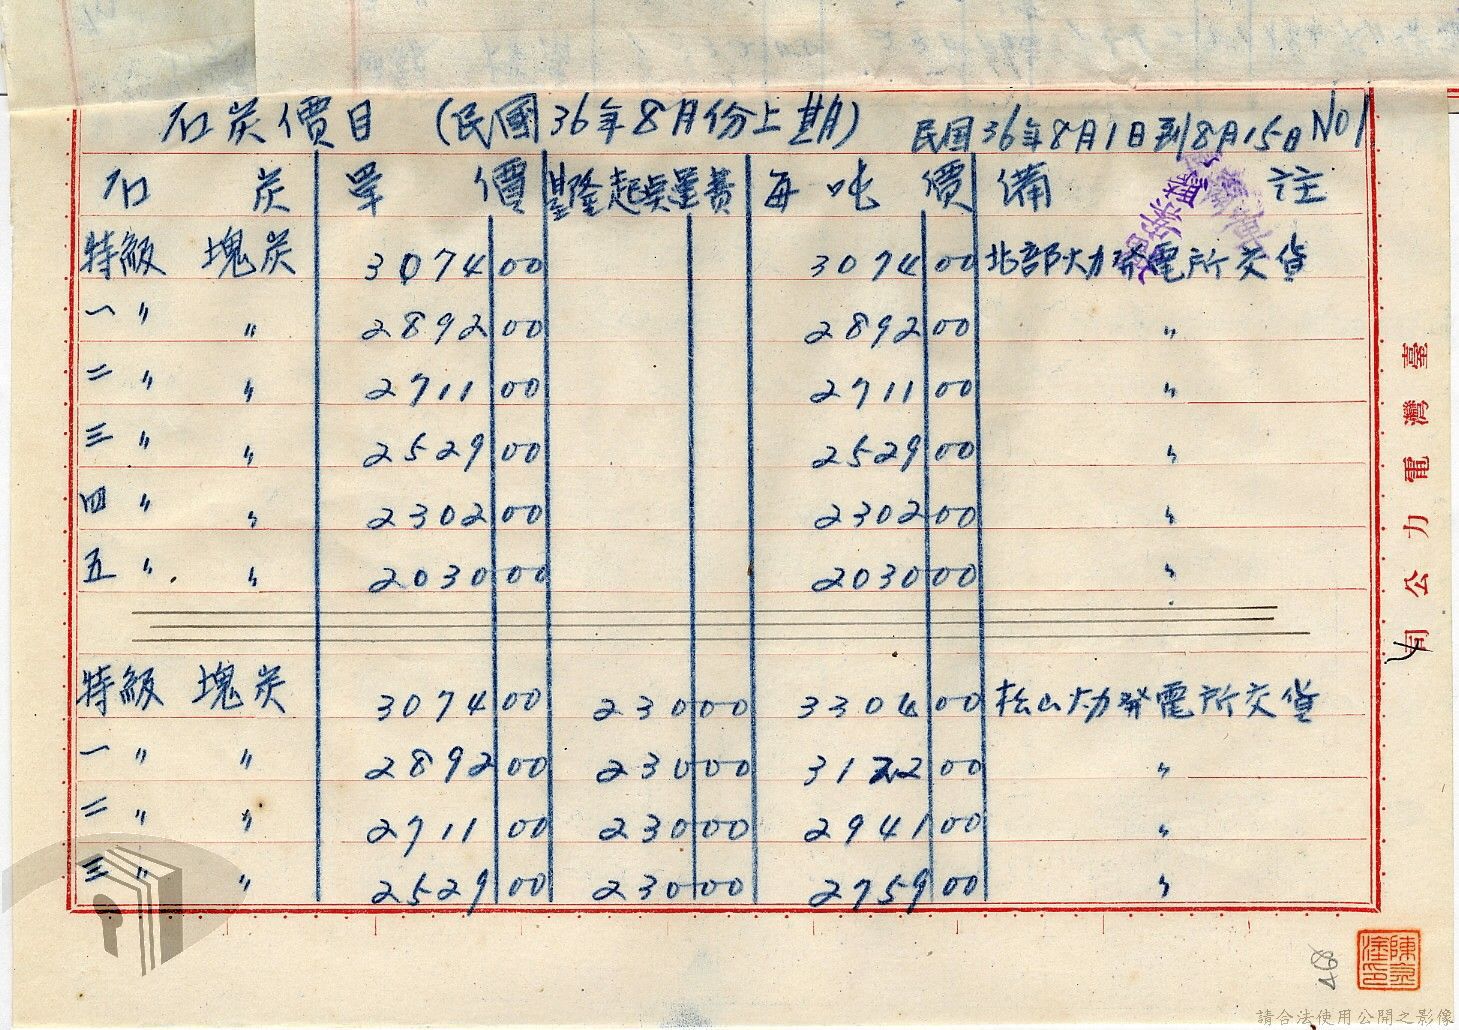 石炭價目 (民國36年8月份上期) 民国36年8月1日到8月15日 NO1
石炭 單價 基隆起矣運費 每吨價 備註
特級 塊炭 3074 00 3074 00 北部火力發電所交貨
一 〃 〃 2892 00 2892 00 〃
二 〃 〃 2711 00 2711 00 〃
三 〃 〃 2529 00 2529 00 〃
四 〃 〃 2302 00 2302 00 〃
五 〃 〃 2030 00 2030 00 〃
特級 塊炭 3074 00 230 00 3304 00 松山火力發電所交貨
一 〃 〃 2892 00 230 00 3122 00 〃
二 〃 〃 2711 00 230 00 2941 00 〃
三 〃 〃 2529 00 230 00 2759 00 〃
臺灣電力公司
468
請合法使用公開之影像